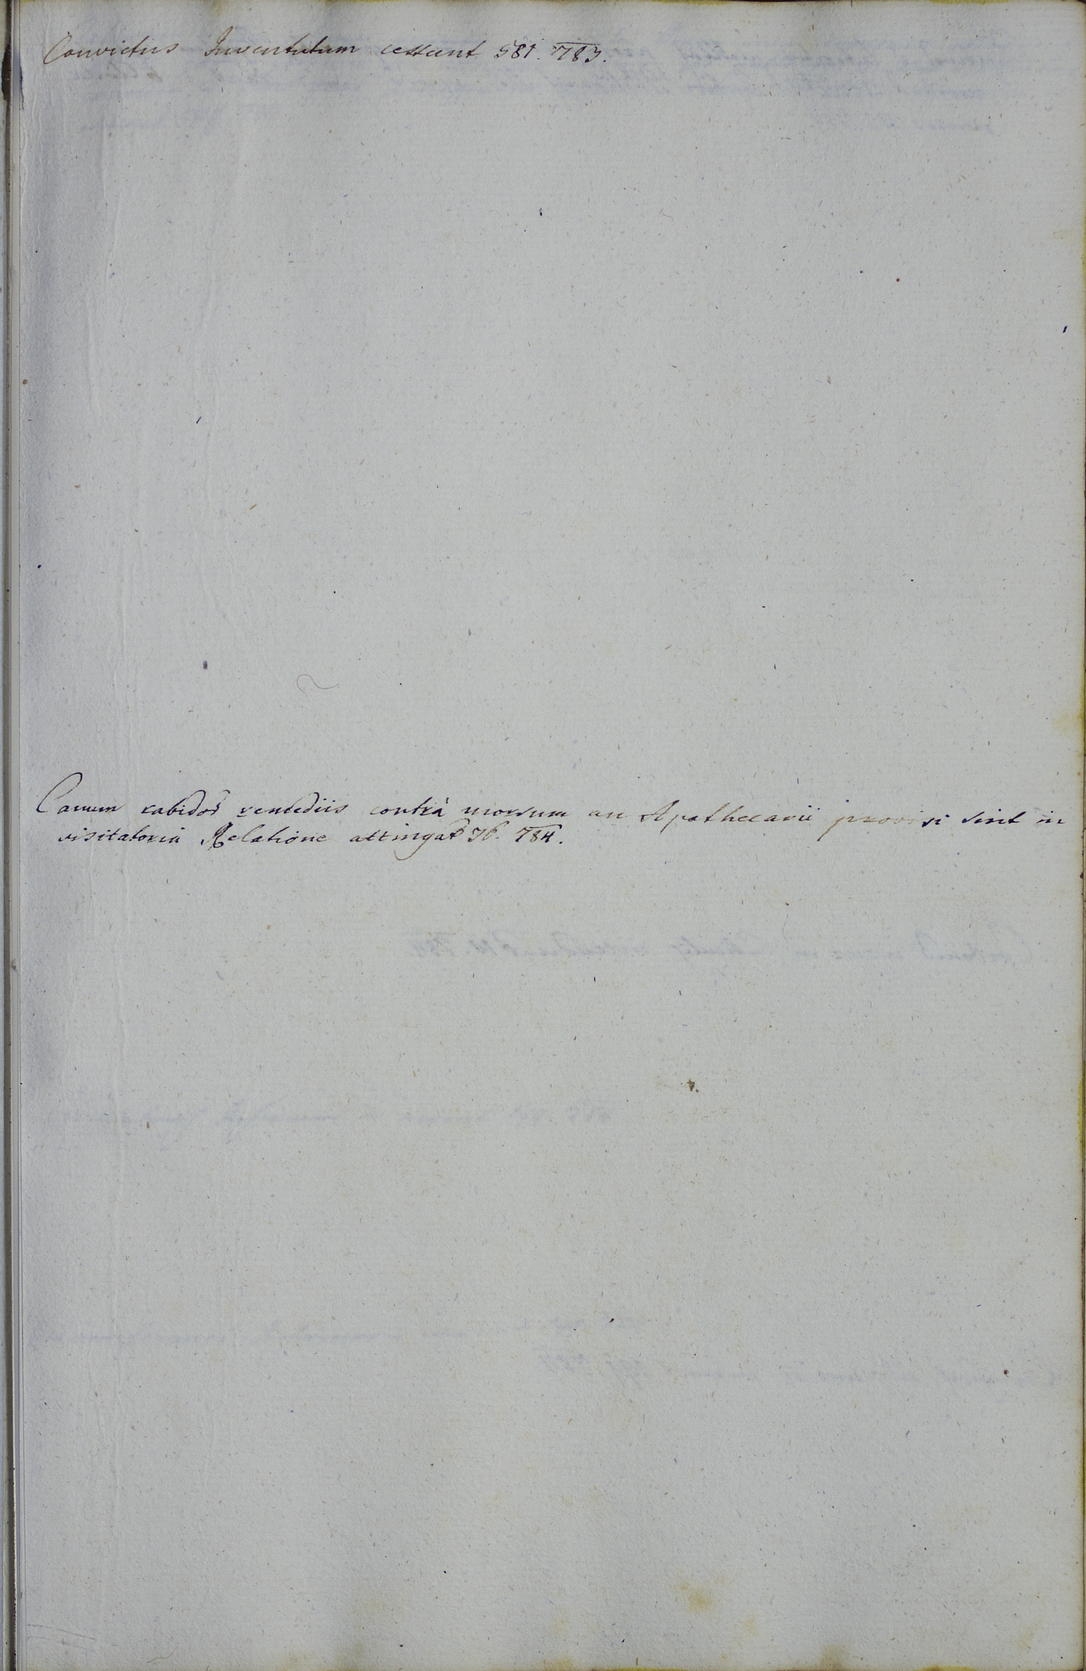 Convictus Juventutum cessent 581. 783.
Canum rabidor̃ remediis contrà morsum an Apothecarii provisi sint in
visitatoria Relatione attingat͂ 76. 784.